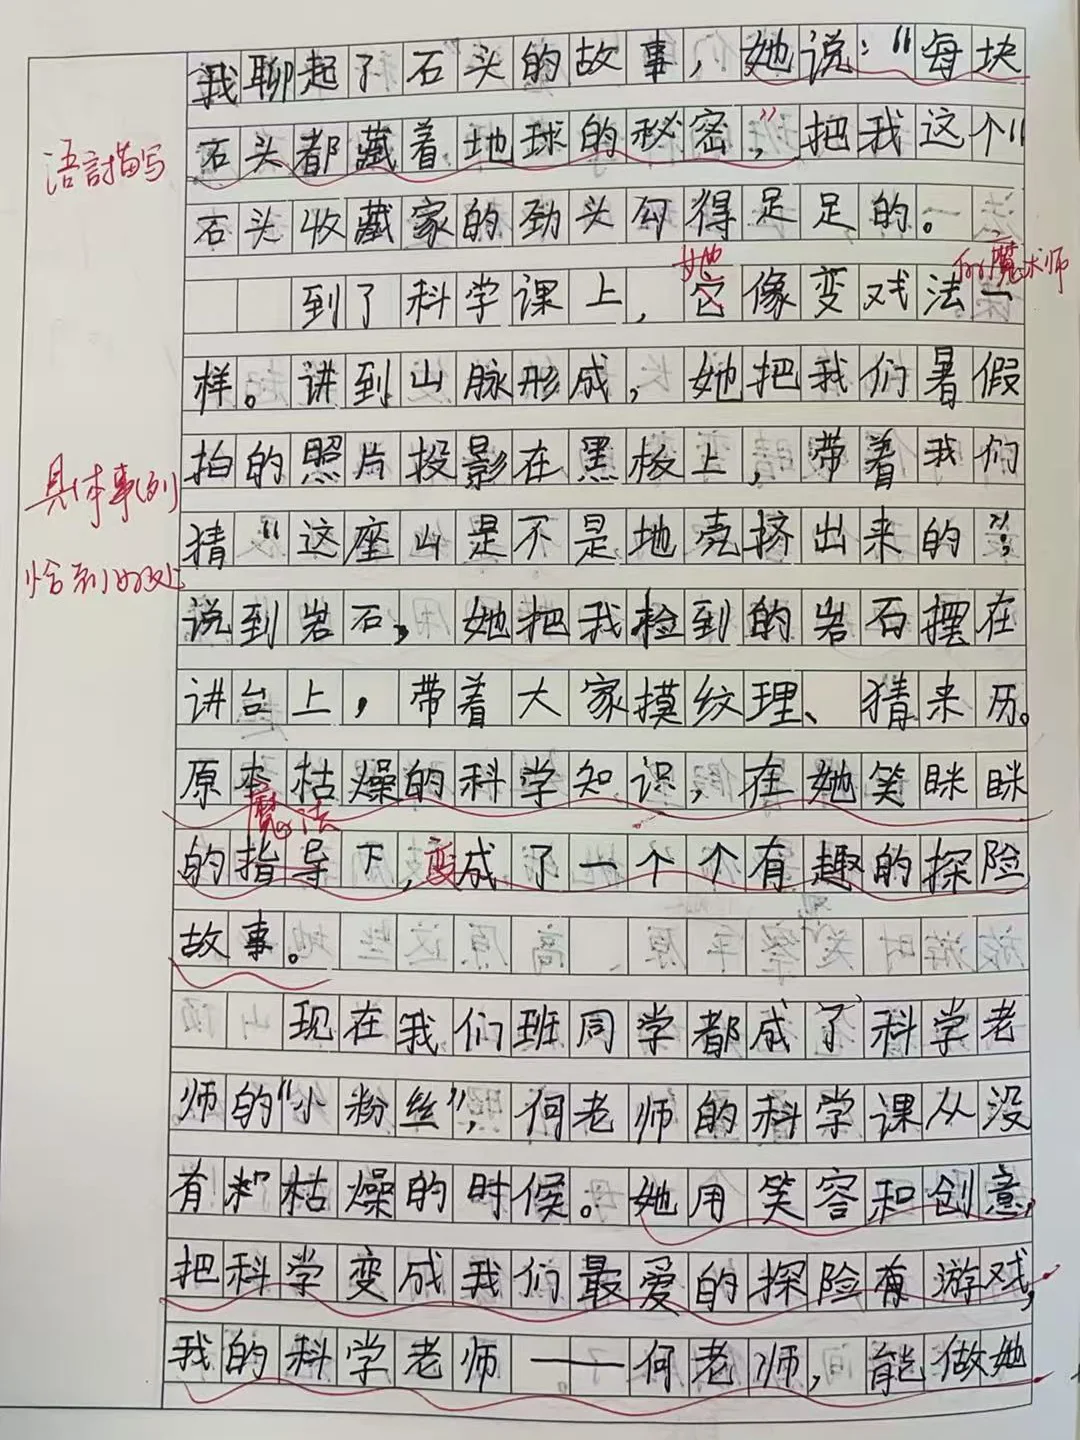 我聊起了石头的故事，她说："每块
石头都藏着地球的秘密，"把我这个"
语言描写
石头收藏家的劲头勾得足足的。
她
的魔术师
到了科学课上，它像变戏法一
样。讲到山脉形成，她把我们暑假
拍的照片投影在黑板上，带着我们
具体事例
猜"这座山是不是地壳挤出来的？"
恰到好处
说到岩石，她把我捡到的岩石摆在
讲台上，带着大家摸纹理、猜来历。
原本枯燥的科学知识，在她笑眯眯
魔法
的指导下，变成了一个个有趣的探险
故事。
现在我们班同学都成了科学老
师的"小粉丝"，何老师的科学课从没
有枯燥的时候。她用笑容和创意，
把科学变成我们最爱的探险有游戏，
我的科学老师——何老师，能做她